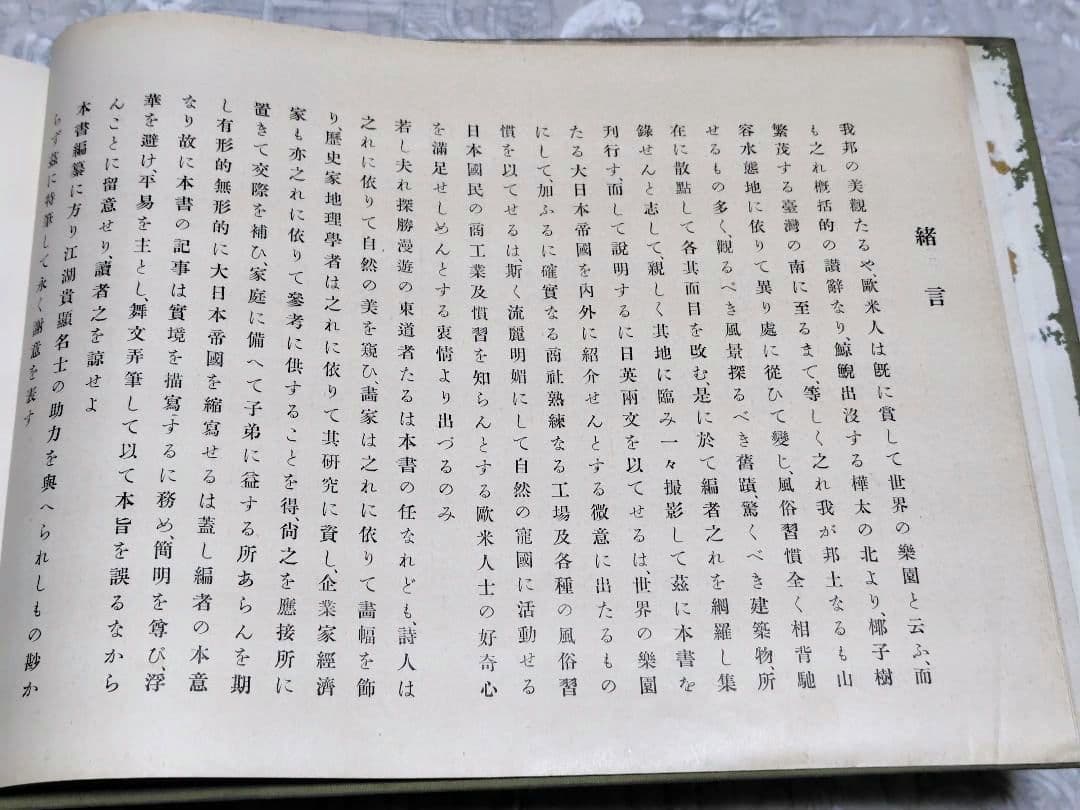 緒言
我邦の美觀たるや、歐米人は旣に賞して世界の樂園と云ふ、而
も之れ槪括的の讃辭なり、鯨鯢出沒する樺太の北より、椰子樹
繁茂する臺灣の南に至るまで、等しく之れ我が邦土なるも山
容水態地に依りて異り處に從ひて變じ、風俗習慣全く相背馳
せるもの多く、觀るべき風景探るべき舊蹟、驚くべき建築物、所
在に散點して各其面目を改む、是に於て編者之れを網羅し集
錄せんと志して、親しく其地に臨み一々撮影して玆に本書を
刊行す、而して說明するに日英兩文を以てせるは、世界の樂園
たる大日本帝國を內外に紹介せんとする微意に出たるもの
にして、加ふるに確實なる商社熟練なる工場及各種の風俗習
慣を以てせるは、斯く流麗明媚にして自然の寵國に活動せる
日本國民の商工業及慣習を知らんとする歐米人士の好奇心
を滿足せしめんとする衷情より出づるのみ
若し夫れ探勝漫遊の東道者たるは本書の任なれども、詩人は
之れに依りて自然の美を窺ひ、畵家は之れに依りて畵幅を飾
り、歷史家地理學者は之れに依りて其硏究に資し、企業家經濟
家も亦之れに依りて參考に供することを得、尙之を應接所に
置きて交際を補ひ、家庭に備へて子弟に益する所あらんを期
し有形的無形的に大日本帝國を縮寫せるは蓋し編者の本意
なり故に本書の記事は實境を描寫するに務め、簡明を尊び、浮
華を避け、平易を主とし、舞文弄筆して以て本旨を誤るなから
んことに留意せり、讀者之を諒せよ
本書編纂に方り江湖貴顯名士の助力を與へられしもの尠か
らず玆に特筆して永く謝意を表す